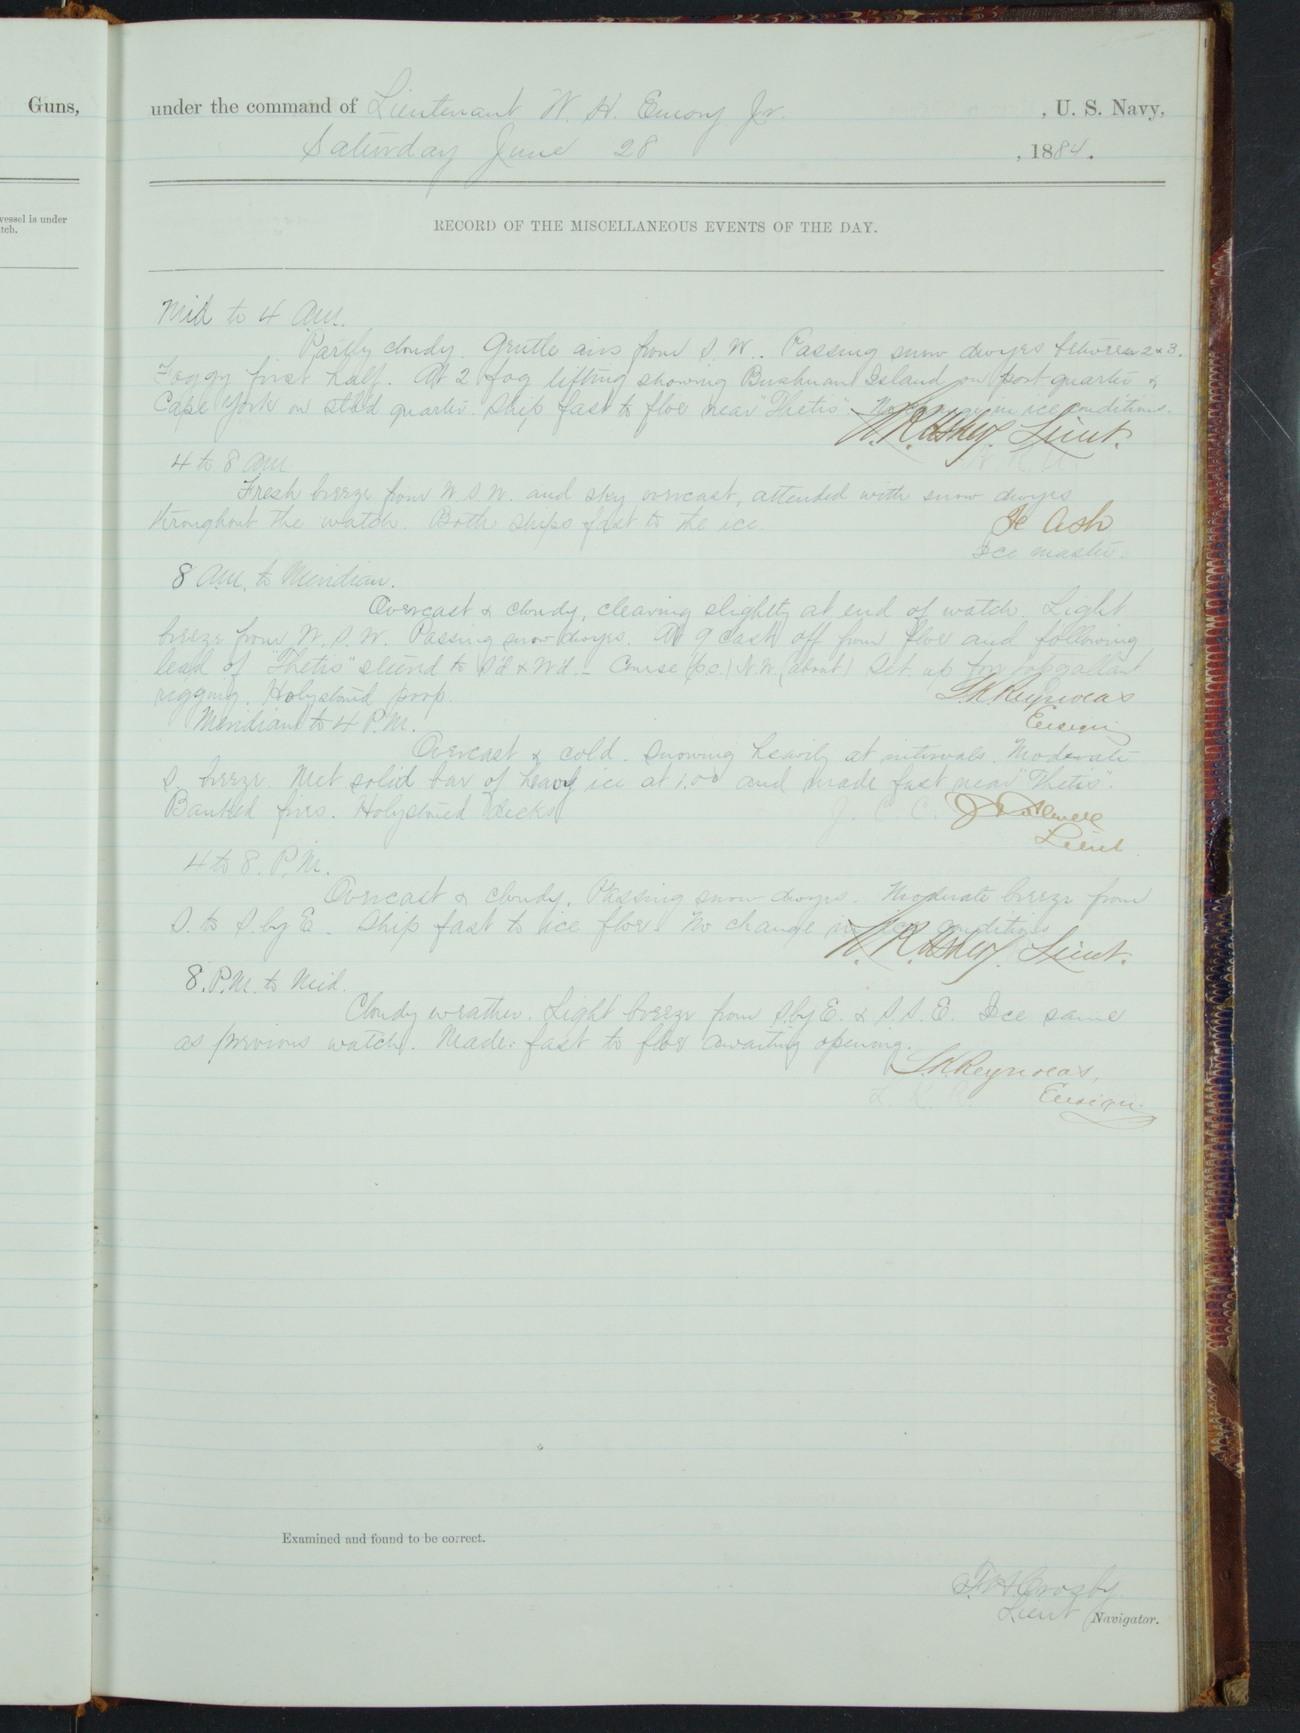 Guns,
under the command of Lieutenant W. H. Emory Jr. , U. S. Navy,
Saturday June 28 , 1884.
vessel is under
tch.
RECORD OF THE MISCELLANEOUS EVENTS OF THE DAY.
Mid to 4 am.
Partly cloudy. Gentle airs from S. W. Passing snow dwyes between 2 & 3.
Foggy first half. At 2 fog lifting showing Bushnan Island on port quarter &
Cape York on stb'd quarter. Ship fast to floe near "Thetis". No change in ice conditions.
Lieut.
4 to 8 am
Fresh breeze from W. S. W. and sky overcast, attended with snow dwyes
throughout the watch. Both ships fast to the ice.
Ash
Ice master.
8 am. to Meridian.
Overcast & cloudy, clearing slightly at end of watch. Light
breeze from W. S. W. Passing snow dwyes. At 9 cast off from floe and following
lead of "Thetis" steered to S'd & W'd. Course (p.c.) N.W. (about) Set up fore topgallant
rigging. Holystoned poop.
Reynolds
Ensign
Meridian to 4 P.M.
Overcast & cold. Snowing heavily at intervals. Moderate
S. breeze. Met solid bar of heavy ice at 1.00 and made fast near "Thetis".
Banked fires. Holystoned decks
J. C. C.
Lieut
4 to 8. P.M.
Overcast & cloudy. Passing snow dwyes. Moderate breeze from
S. to S. by E. Ship fast to ice floe. No change in ice conditions
Lieut.
8. P.M. to Mid.
Cloudy weather. Light breeze from S by E. & S. S. E. Ice same
as previous watch. Made fast to floe awaiting opening.
Reynolds,
L. K. R. Ensign
Examined and found to be correct.
Crosby
Lieut Navigator.